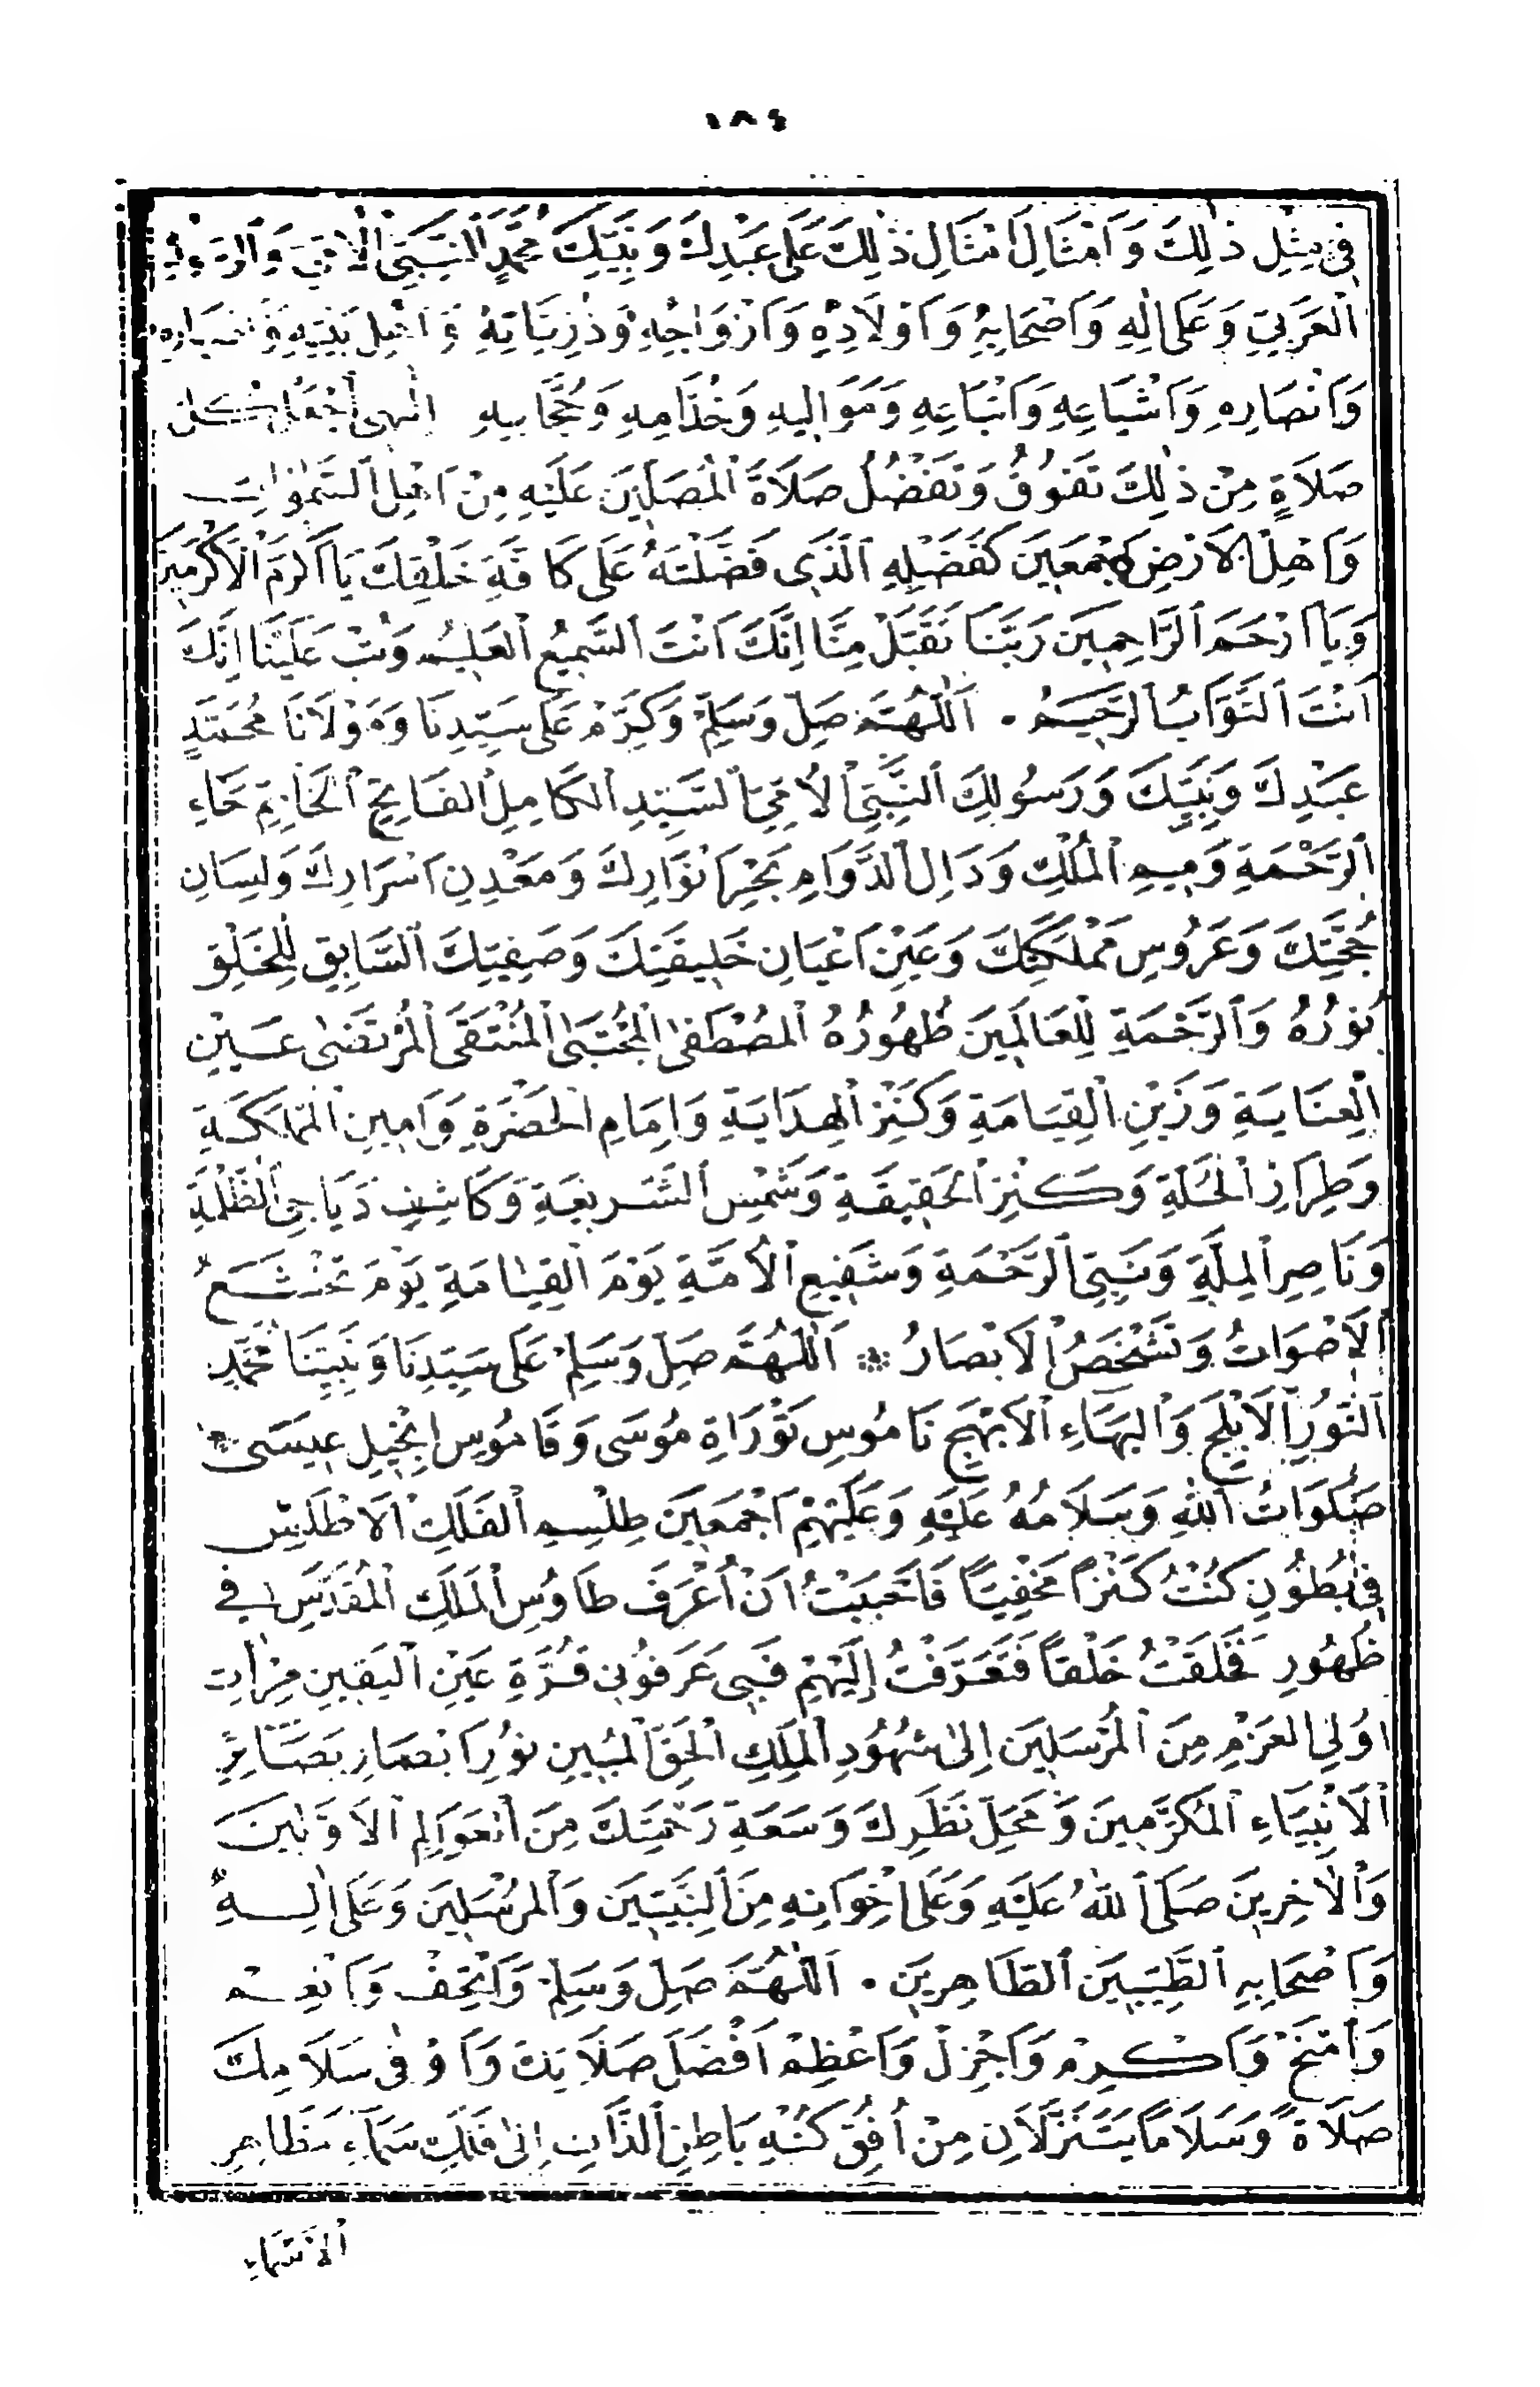 ١٨٤
فِى مِثْلِ ذٰلِكَ وَاَمْثَالِ اَمْثَالِ ذٰلِكَ عَلَى عَبْدِكَ وَنَبِيِّكَ مُحَمَّدٍ النَّبِىِّ الْاُمِّىِّ
الْعَرَبِىِّ وَعَلَى اٰلِهِ وَاَصْحَابِهِ وَاَوْلَادِهِ وَاَزْوَاجِهِ وَذُرِّيَّاتِهِ وَاَهْلِ بَيْتِهِ
وَاَنْصَارِهِ وَاَشْيَاعِهِ وَاَتْبَاعِهِ وَمَوَالِيهِ وَخُدَّامِهِ وَحُجَّابِهِ اِلٰهِى اجْعَلْ كُلَّ
صَلَاةٍ مِنْ ذٰلِكَ تَفُوقُ وَتَفْضُلُ صَلَاةَ الْمُصَلِّينَ عَلَيْهِ مِنْ اَهْلِ السَّمٰوَاتِ
وَاَهْلِ الْاَرْضِ اَجْمَعِينَ كَفَضْلِهِ الَّذِى فَضَّلْتَهُ عَلَى كَافَّةِ خَلْقِكَ يَا اَكْرَمَ الْاَكْرَمِينَ
وَيَا اَرْحَمَ الرَّاحِمِينَ رَبَّنَا تَقَبَّلْ مِنَّا اِنَّكَ اَنْتَ السَّمِيعُ الْعَلِيمُ وَتُبْ عَلَيْنَا اِنَّكَ
اَنْتَ التَّوَّابُ الرَّحِيمُ . اَللّٰهُمَّ صَلِّ وَسَلِّمْ وَكَرِّمْ عَلَى سَيِّدِنَا وَمَوْلَانَا مُحَمَّدٍ
عَبْدِكَ وَنَبِيِّكَ وَرَسُولِكَ النَّبِىِّ الْاُمِّىِّ السَّيِّدِ الْكَامِلِ الْفَاتِحِ الْخَاتِمِ حَاءِ
الرَّحْمَةِ وَمِيمِ الْمُلْكِ وَدَالِ الدَّوَامِ بَحْرِ اَنْوَارِكَ وَمَعْدِنِ اَسْرَارِكَ وَلِسَانِ
حُجَّتِكَ وَعَرُوسِ مَمْلَكَتِكَ وَعَيْنِ اَعْيَانِ خَلِيقَتِكَ وَصَفِيِّكَ السَّابِقِ لِلْخَلْقِ
نُورُهُ وَالرَّحْمَةِ لِلْعَالَمِينَ ظُهُورُهُ الْمُصْطَفٰى الْمُجْتَبٰى الْمُنْتَقٰى الْمُرْتَضٰى عَيْنِ
الْعِنَايَةِ وَزَيْنِ الْقِيَامَةِ وَكَنْزِ الْهِدَايَةِ وَاِمَامِ الْحَضْرَةِ وَاَمِينِ الْمَمْلَكَةِ
وَطِرَازِ الْحُلَّةِ وَكَنْزِ الْحَقِيقَةِ وَشَمْسِ الشَّرِيعَةِ وَكَاشِفِ دَيَاجِى الظُّلْمَةِ
وَنَاصِرِ الْمِلَّةِ وَنَبِىِّ الرَّحْمَةِ وَشَفِيعِ الْاُمَّةِ يَوْمَ الْقِيٰامَةِ يَوْمَ تَخْشَعُ
الْاَصْوَاتُ وَتَشْخَصُ الْاَبْصَارُ ۞ اَللّٰهُمَّ صَلِّ وَسَلِّمْ عَلَى سَيِّدِنَا وَنَبِيِّنَا مُحَمَّدٍ
النُّورِ الْاَبْلَجِ وَالْبَهَاءِ الْاَبْهَجِ نَامُوسِ تَوْرَاةِ مُوسَى وَقَامُوسِ اِنْجِيلِ عِيسَى
صَلَوَاتُ اللّٰهِ وَسَلَامُهُ عَلَيْهِ وَعَلَيْهِمْ اَجْمَعِينَ طِلْسِمِ الْفَلَكِ الْاَطْلَسِ
فِى بُطُونِ كُنْتُ كَنْزًا مَخْفِيًّا فَاَحْبَبْتُ اَنْ اُعْرَفَ طَاوُسِ الْمَلَكِ الْمُقَدَّسِ فِى
ظُهُورِ فَخَلَقْتُ خَلْقًا فَتَعَرَّفْتُ اِلَيْهِمْ فَبِى عَرَفُونِى قُرَّةِ عَيْنِ الْيَقِينِ مِرْاٰتِ
اُولِى الْعَزْمِ مِنَ الْمُرْسَلِينَ اِلٰى شُهُودِ الْمَلِكِ الْحَقِّ الْمُبِينِ نُورِ اَبْصَارِ بَصَائِرِ
الْاَنْبِيَاءِ الْمُكَرَّمِينَ وَمَحَلِّ نَظَرِكَ وَسَعَةِ رَحْمَتِكَ مِنَ الْعَوَالِمِ الْاَوَّلِينَ
وَالْاٰخِرِينَ صَلَّى اللّٰهُ عَلَيْهِ وَعَلَى اِخْوَانِهِ مِنَ النَّبِيِّينَ وَالْمُرْسَلِينَ وَعَلَى اٰلِهِ
وَاَصْحَابِهِ الطَّيِّبِينَ الطَّاهِرِينَ . اَللّٰهُمَّ صَلِّ وَسَلِّمْ وَاَتْحِفْ وَاَنْعِمْ
وَامْنَحْ وَاَكْرِمْ وَاَجْزِلْ وَاَعْظِمْ اَفْضَلَ صَلَاتِكَ وَاَوْفٰى سَلَامِكَ
صَلَاةً وَسَلَامًا يَتَنَزَّلَانِ مِنْ اُفُقِ كُنْهِ بَاطِنِ الذَّاتِ اِلٰى فَلَكِ سَمَاءِ مَظَاهِرِ
الْاَسْمَاءِ